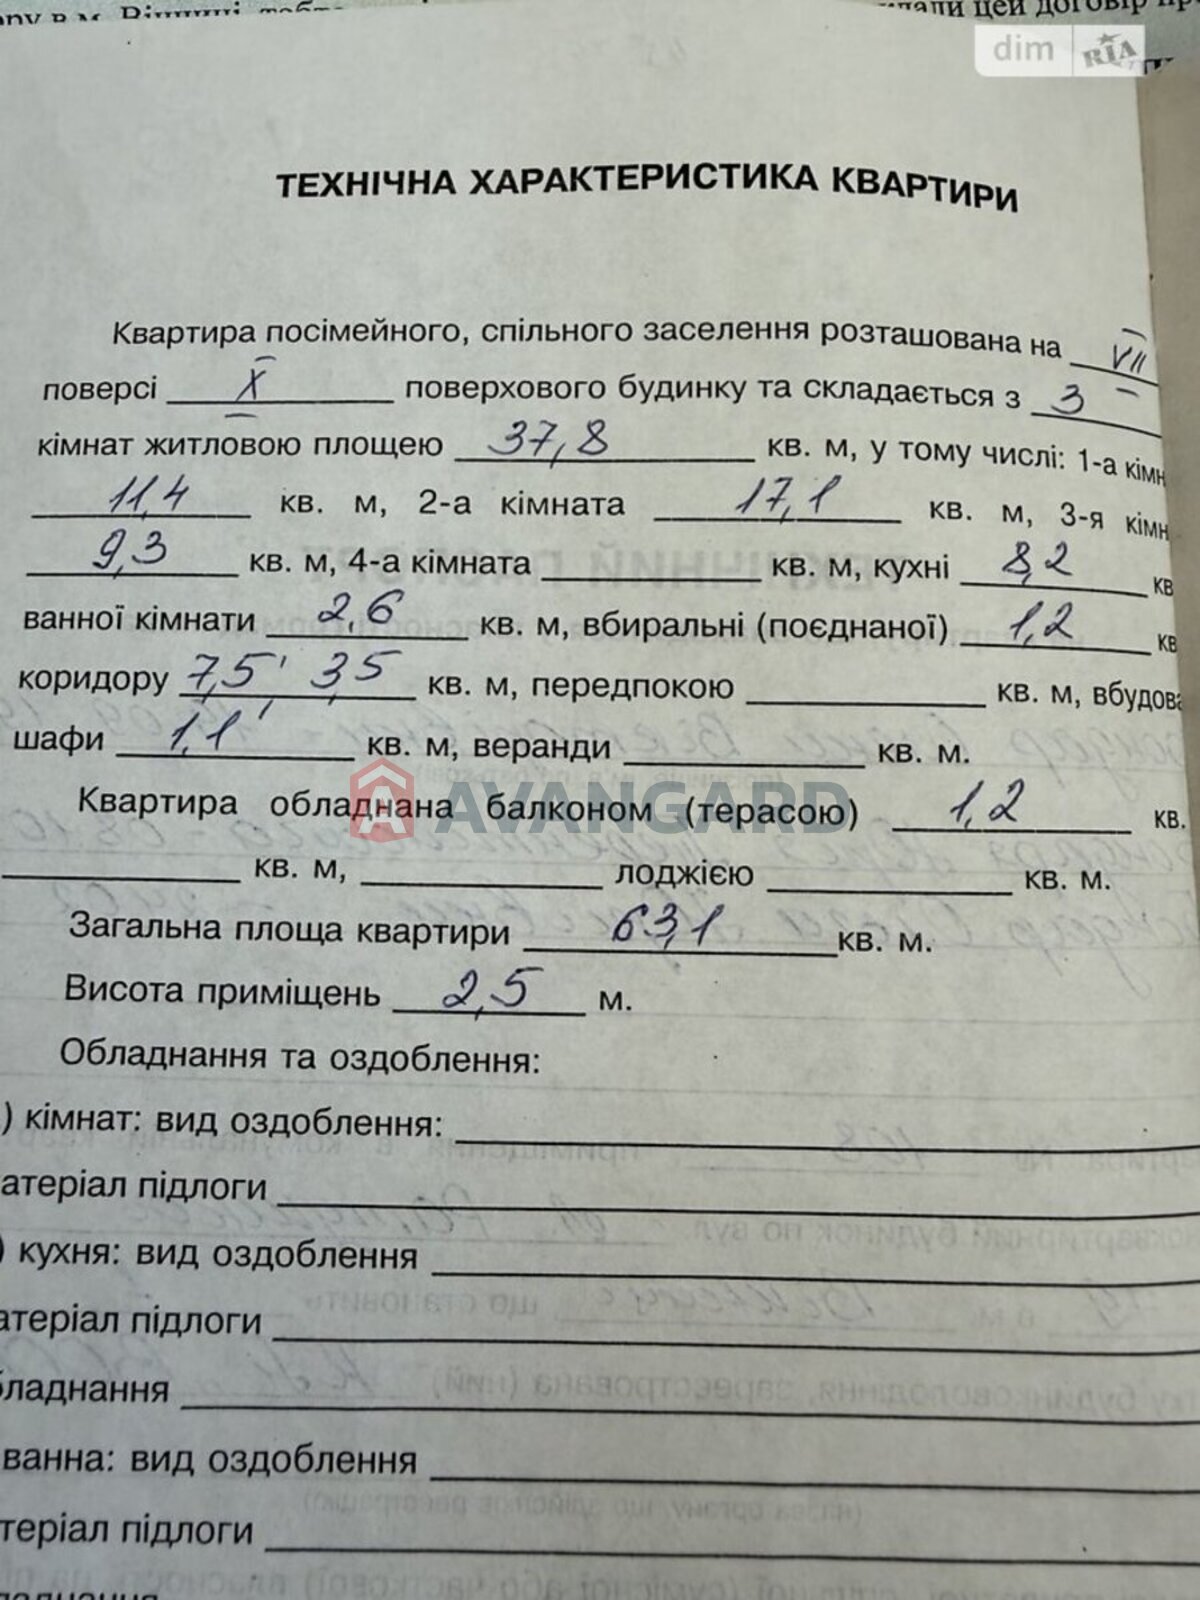 dim RIA
ТЕХНІЧНА ХАРАКТЕРИСТИКА КВАРТИРИ
Квартира посімейного, спільного заселення розташована на VII
поверсі X поверхового будинку та складається з 3
кімнат житловою площею 37,8 кв. м, у тому числі: 1-а кімн
11,4 кв. м, 2-а кімната 17,1 кв. м, 3-я кімн
9,3 кв. м, 4-а кімната кв. м, кухні 8,2 кв
ванної кімнати 2,6 кв. м, вбиральні (поєднаної) 1,2 кв
коридору 7,5, 3,5 кв. м, передпокою кв. м, вбудова
шафи 1,1 кв. м, веранди кв. м.
AVANGARD
Квартира обладнана балконом (терасою) 1,2 кв.
кв. м, лоджією кв. м.
Загальна площа квартири 63,1 кв. м.
Висота приміщень 2,5 м.
Обладнання та оздоблення:
) кімнат: вид оздоблення:
атеріал підлоги
) кухня: вид оздоблення
атеріал підлоги
бладнання
ванна: вид оздоблення
теріал підлоги